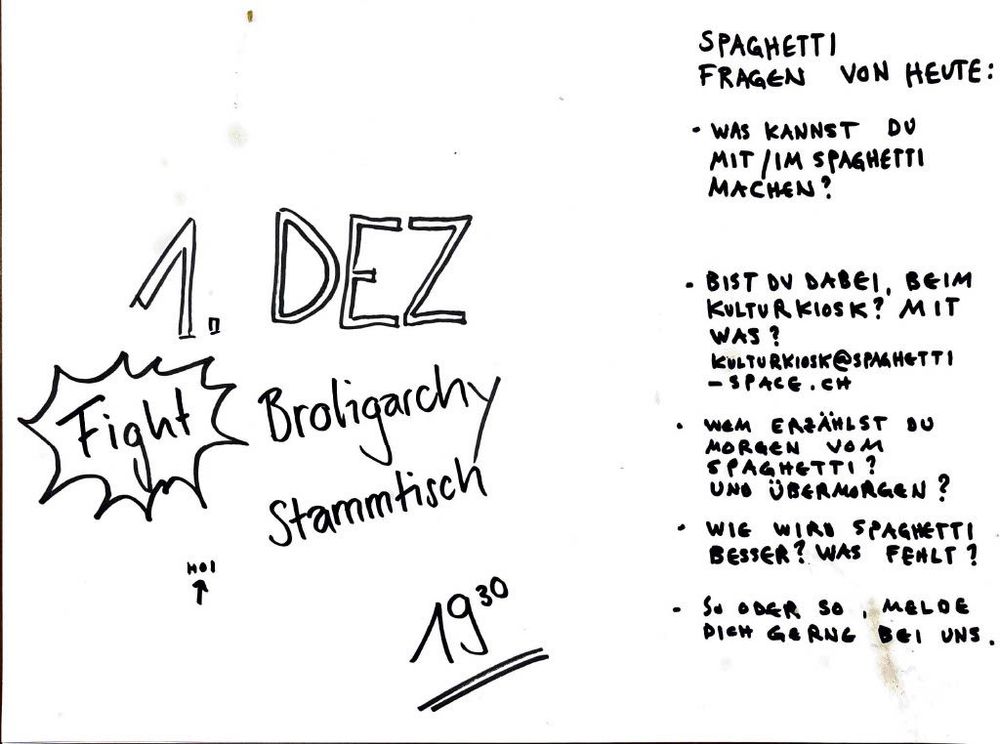 1. DEZ
Fight
Broligarchy
Stammtisch
HOI
19 30
SPAGHETTI
FRAGEN VON HEUTE:
• WAS KANNST DU
MIT/IM SPAGHETTI
MACHEN?
• BIST DU DABEI, BEIM
KULTURKIOSK? MIT
WAS?
KULTURKIOSK@SPAGHETTI
-SPACE.CH
• WEM ERZÄHLST DU
MORGEN VOM
SPAGHETTI?
UND ÜBERMORGEN?
• WIE WIRD SPAGHETTI
BESSER? WAS FEHLT?
• SO ODER SO, MELDE
DICH GERNE BEI UNS.